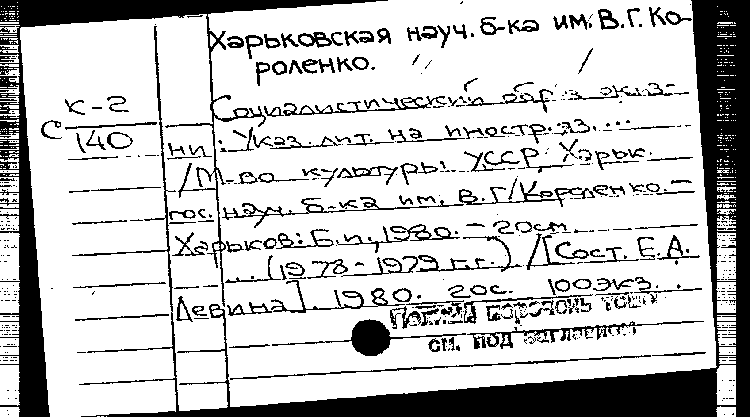 Харьковская науч. б-ка им. В.Г. Ко-
роленко.
К-2
С 140
Социалистический образ жиз-
ни : Указ. лит. на иностр. яз. ...
/М-во культуры УССР, Харьк.
гос. науч. б-ка им. В.Г. Короленко. -
Харьков: Б.и., 1980. - 20см.
... (1978 - 1979 г.г.) /[Сост. Е.Д.
Левина]. 1980. 20с. 100экз. .
Полный перечень томов
см. под заглавием